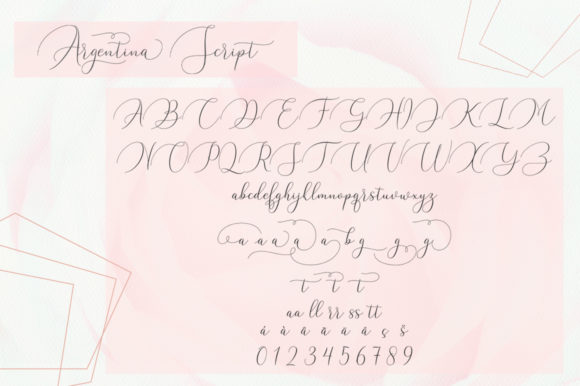 Argentina Script
A B C D E F G H I J K L M
N O P Q R S T U V W X Y Z
abcdefghijklmnopqrstuvwxyz
a a a a b g g g
t t t
aa ll rr ss tt
á à a a a a ç š
0 1 2 3 4 5 6 7 8 9